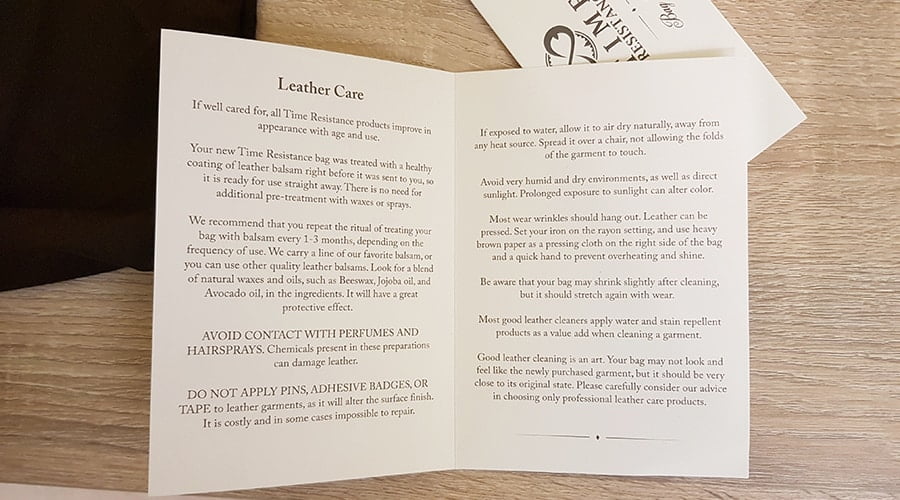 Leather Care
If well cared for, all Time Resistance products improve in
appearance with age and use.
Your new Time Resistance bag was treated with a healthy
coating of leather balsam right before it was sent to you, so
it is ready for use straight away. There is no need for
additional pre-treatment with waxes or sprays.
We recommend that you repeat the ritual of treating your
bag with balsam every 1-3 months, depending on the
frequency of use. We carry a line of our favorite balsam, or
you can use other quality leather balsams. Look for a blend
of natural waxes and oils, such as Beeswax, Jojoba oil, and
Avocado oil, in the ingredients. It will have a great
protective effect.
AVOID CONTACT WITH PERFUMES AND
HAIRSPRAYS. Chemicals present in these preparations
can damage leather.
DO NOT APPLY PINS, ADHESIVE BADGES, OR
TAPE to leather garments, as it will alter the surface finish.
It is costly and in some cases impossible to repair.
If exposed to water, allow it to air dry naturally, away from
any heat source. Spread it over a chair, not allowing the folds
of the garment to touch.
Avoid very humid and dry environments, as well as direct
sunlight. Prolonged exposure to sunlight can alter color.
Most wear wrinkles should hang out. Leather can be
pressed. Set your iron on the rayon setting, and use heavy
brown paper as a pressing cloth on the right side of the bag
and a quick hand to prevent overheating and shine.
Be aware that your bag may shrink slightly after cleaning,
but it should stretch again with wear.
Most good leather cleaners apply water and stain repellent
products as a value add when cleaning a garment.
Good leather cleaning is an art. Your bag may not look and
feel like the newly purchased garment, but it should be very
close to its original state. Please carefully consider our advice
in choosing only professional leather care products.
Bag